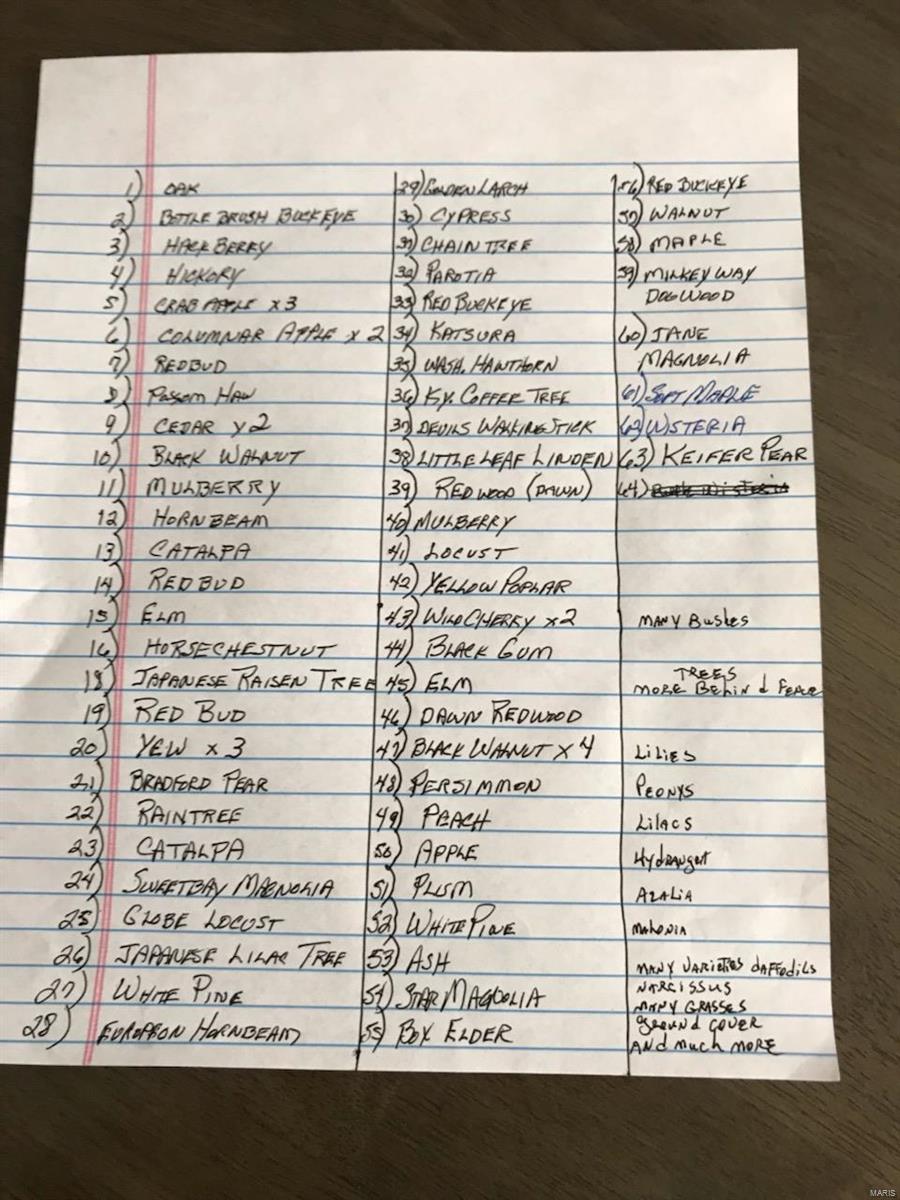 1) OAK
2) BOTTLE BRUSH BUCKEYE
3) HACK BERRY
4) HICKORY
5) CRAB APPLE x3
6) COLUMNAR APPLE x 2
7) REDBUD
8) Possom HAW
9) CEDAR x2
10) BLACK WALNUT
11) MULBERRY
12) HORNBEAM
13) CATALPA
14) REDBUD
15) ELM
16) HORSECHESTNUT
18) JAPANESE RAISEN TREE
19) RED BUD
20) YEW x 3
21) BRADFORD PEAR
22) RAINTREE
23) CATALPA
24) SWEETBAY MAGNOLIA
25) GLOBE LOCUST
26) JAPANESE LILAC TREE
27) WHITE PINE
28) EUROPEON HORNBEAM
29) GOLDEN LARCH
30) CYPRESS
31) CHAIN TREE
32) PAROTIA
33) RED BUCKEYE
34) KATSURA
35) WASH. HAWTHORN
36) KY. COFFER TREE
37) DEVILS WALKING STICK
38) LITTLE LEAF LINDEN
39) REDWOOD (DAWN)
40) MULBERRY
41) LOCUST
42) YELLOW POPLAR
43) WILD CHERRY x2
44) BLACK GUM
45) ELM
46) DAWN REDWOOD
47) BLACK WALNUT x 4
48) PERSIMMON
49) PEACH
50) APPLE
51) PLUM
52) WHITE PINE
53) ASH
54) STAR MAGNOLIA
55) BOX ELDER
56) RED BUCKEYE
57) WALNUT
58) MAPLE
59) MILKEY WAY
DOGWOOD
60) JANE
MAGNOLIA
61) SOFT MAPLE
62) WISTERIA
63) KEIFER PEAR
64)
MANY Bushes
TREES
MORE BEHIND FENCE
LILIES
PEONYS
LILACS
HYDRANGEA
AZALIA
MAHONIA
MANY VARIETIES DAFFODILS
NARCISSUS
MANY GRASSES
GROUND COVER
AND MUCH MORE
MARIS